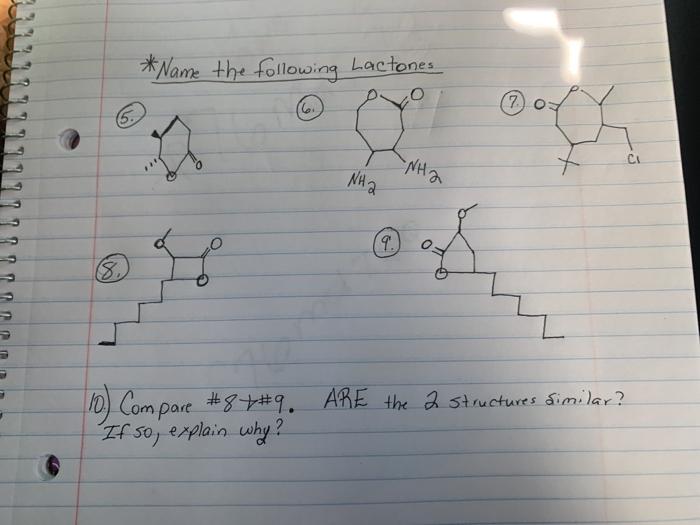 *Name the following Lactones
5.
6.
7.
O
O
O
O
O
O
NH2
NH2
Cl
8.
9.
O
O
O
O
O
O
10) Compare #8 & #9. ARE the 2 structures similar?
If so, explain why?